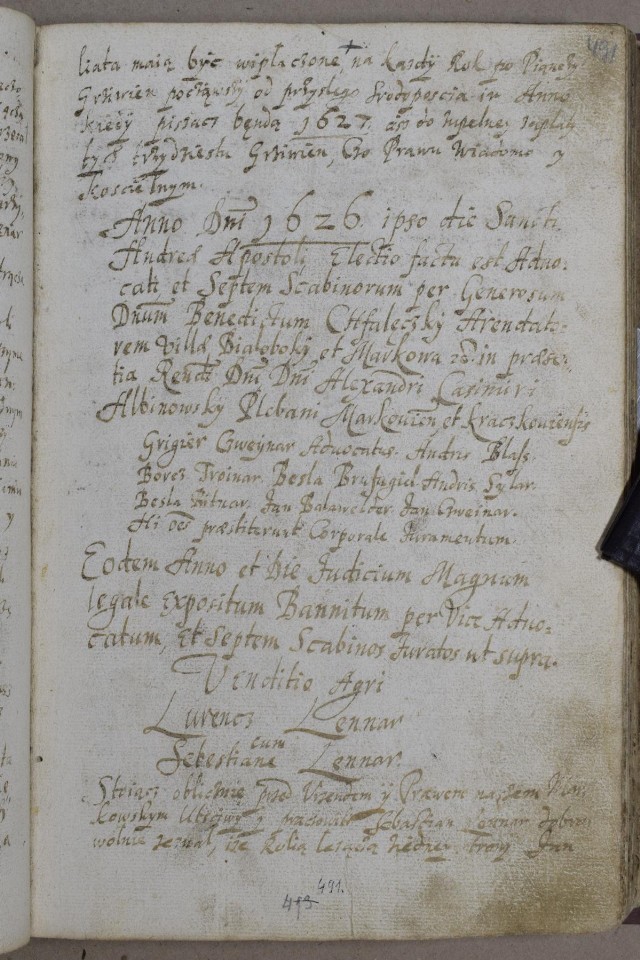 491
liata maią być wipłaczone, na kazdÿ Rok po Piąciu
Grziwien począwszÿ od przyslego Srodoposcia in Anno
kiedÿ pisacz będą 1627. asz do zupelneÿ zaplatÿ
tÿch trzÿdziestu Grziwien, Czo Prawu Wiadomo ÿ
koscielnym.
Anno Dnī 1626. ipso die Sancti
Andreæ Apostoli Electio facta est Aduo:
cati et Septem Scabinorum per Generosum
Dnūm Benedictum Chfaleczkÿ Arendato:
rem Villæ Białobokÿ et Markowa in præse:
tia Rendi Dnī Dnī Alexandri Casimiri
Albinowskÿ Plebani Markouien et Kraczkouiensis
Grigier Czweÿnar Aduocatus. Andris Blass.
Borcz Troinar. Besla Andris Szlar.
Besla Jan Balawelder. Jan Czweinar.
Hi oēs præstiterunt Corporale Juramentum.
Eodem Anno et Die Judicium Magnum
legale Expositum Bannitum per Vice Aduo:
catum, Et Septem Scabinos Juratos ut supra.
Venditio Agri
Lurencz Lennar
cum
Sebestiane Lennar.
Stoiącz oblicznie pzed Vrzendem ÿ Prawem naszem Mar:
kowskÿm Vtściwÿ ÿ pracowitÿ Sebastian Lennar dobro:
wolnie zeznał, ize Rolią leząca Jan
491.
493